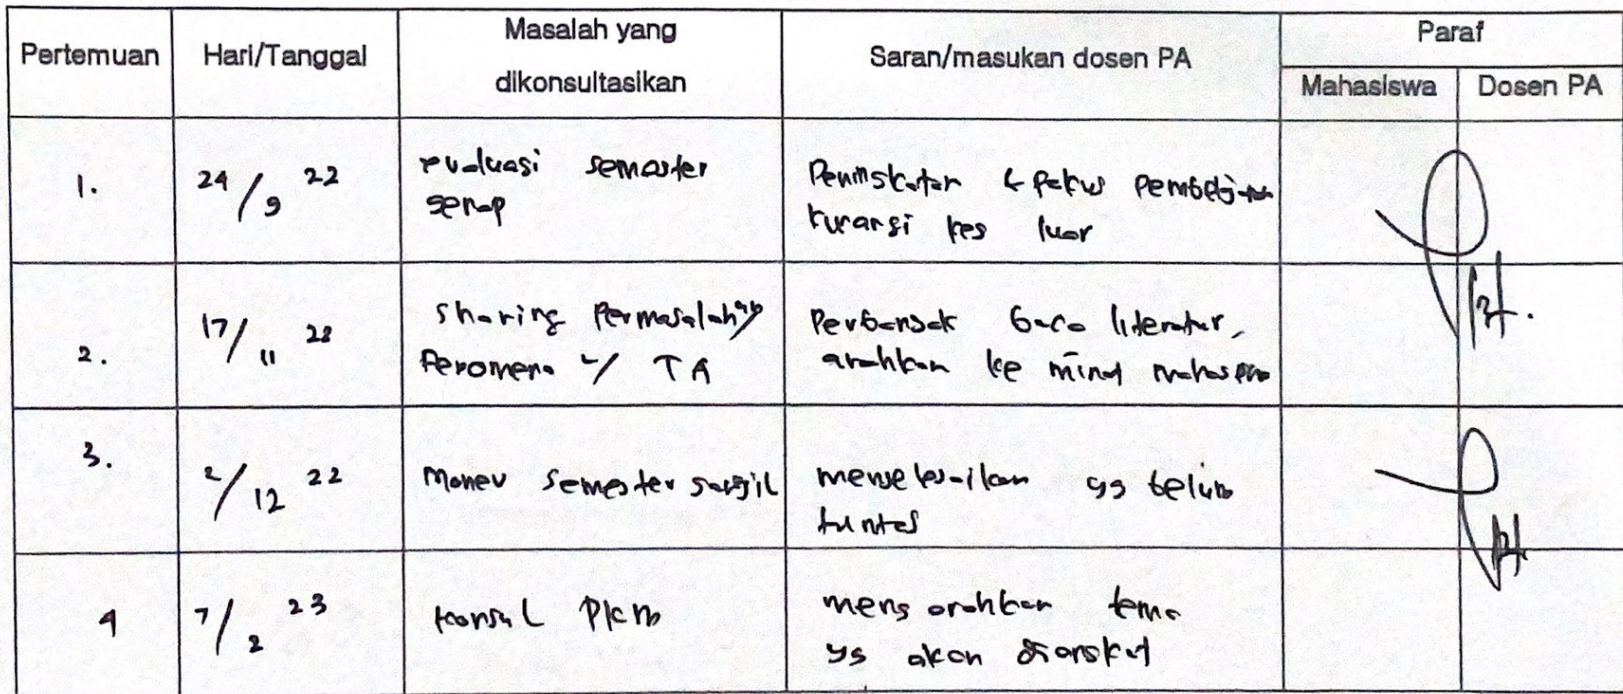 Pertemuan
Hari/Tanggal
Masalah yang
dikonsultasikan
Saran/masukan dosen PA
Paraf
Mahasiswa
Dosen PA
1.
24/9 22
evaluasi semester
genap
Peningkatan & fokus pembelajaran
kurangi keg luar
2.
17/11 22
sharing Permasalahan
Fenomena u/ TA
Perbanyak baca literatur,
arahkan ke minat mahasiswa
3.
2/12 22
Monev semester ganjil
menyelesaikan yg belum
tuntas
4
7/2 23
konsul PKM
mengarahkan tema
yg akan diangkat